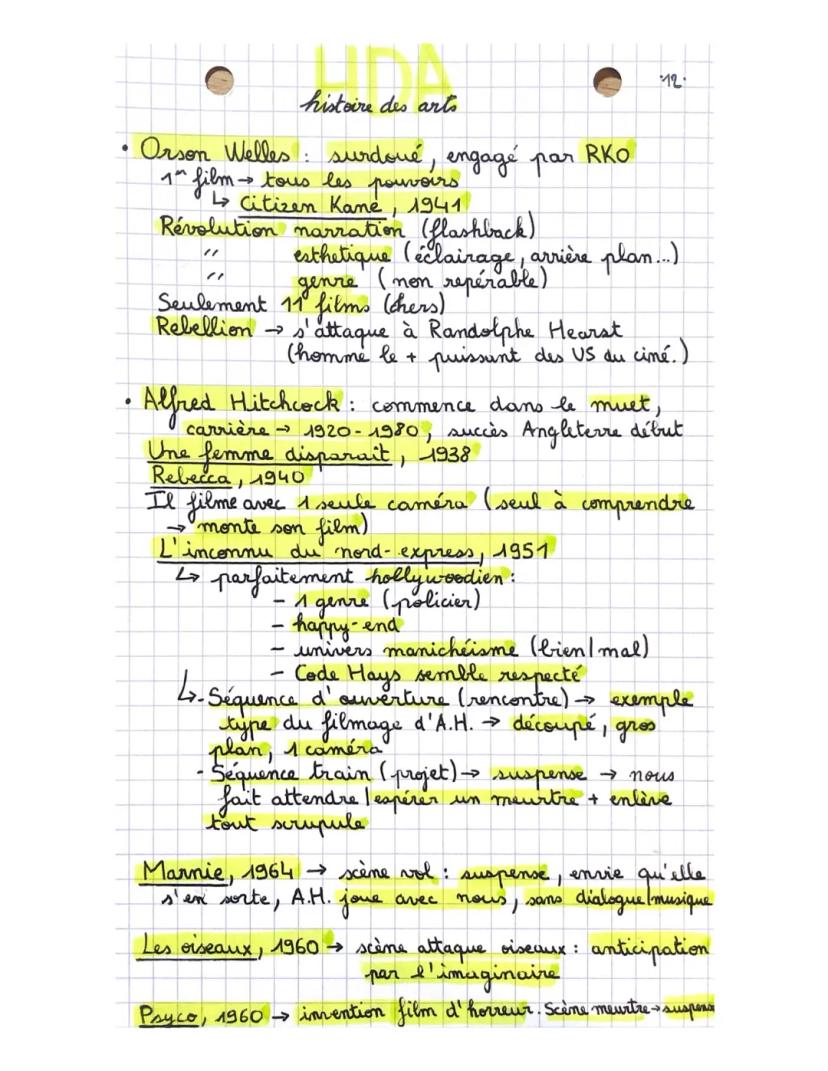 HDA
histoire des arts
·12·
• Orson Welles : surdoué, engagé par RKO
1er film → tous les pouvoirs
↳ Citizen Kane, 1941
Révolution narration (flashback)
" esthetique (éclairage, arrière plan...)
" genre (non repérable)
Seulement 11 films (chers)
Rebellion → s'attaque à Randolphe Hearst
(homme le + puissant des US du ciné.)
• Alfred Hitchcock : commence dans le muet,
carrière → 1920-1980, succès Angleterre début
Une femme disparait, 1938
Rebecca, 1940
Il filme avec 1 seule caméra (seul à comprendre
→ monte son film)
L'inconnu du nord-express, 1951
↳ parfaitement hollywoodien :
- 1 genre (policier)
- happy-end
- univers manichéisme (bien/mal)
- Code Hays semble respecté
↳ - Séquence d'ouverture (rencontre) → exemple
type du filmage d'A.H. → découpé, gros
plan, 1 caméra
- Séquence train (projet) → suspense → nous
fait attendre/espérer un meurtre + enlève
tout scrupule
Marnie, 1964 → scène vol : suspense, envie qu'elle
s'en sorte, A.H. joue avec nous, sans dialogue/musique
Les oiseaux, 1960 → scène attaque oiseaux : anticipation
par l'imaginaire
Psyco, 1960 → invention film d'horreur. Scène meurtre → suspens